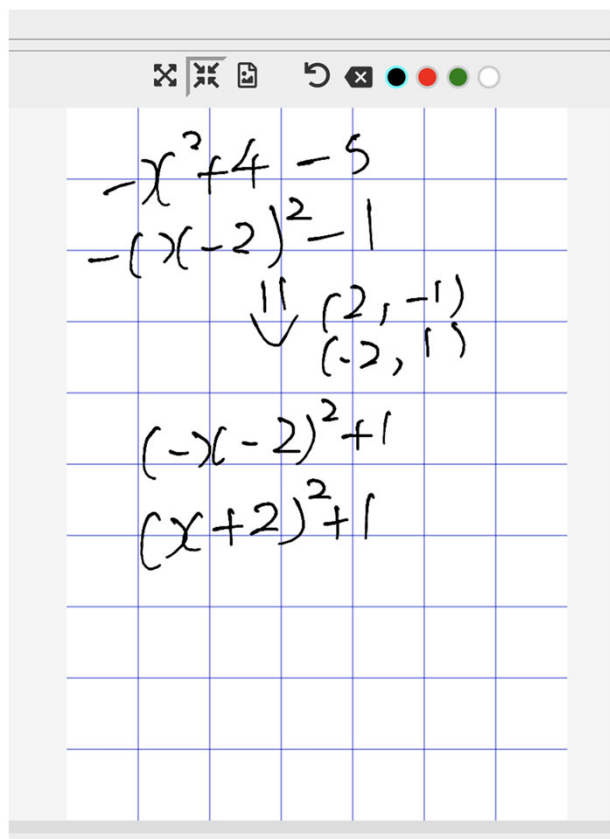 -x²+4 -5
-(x-2)²-1
⇓ (2, -1)
(-2, 1)
(-x-2)²+1
(x+2)²+1